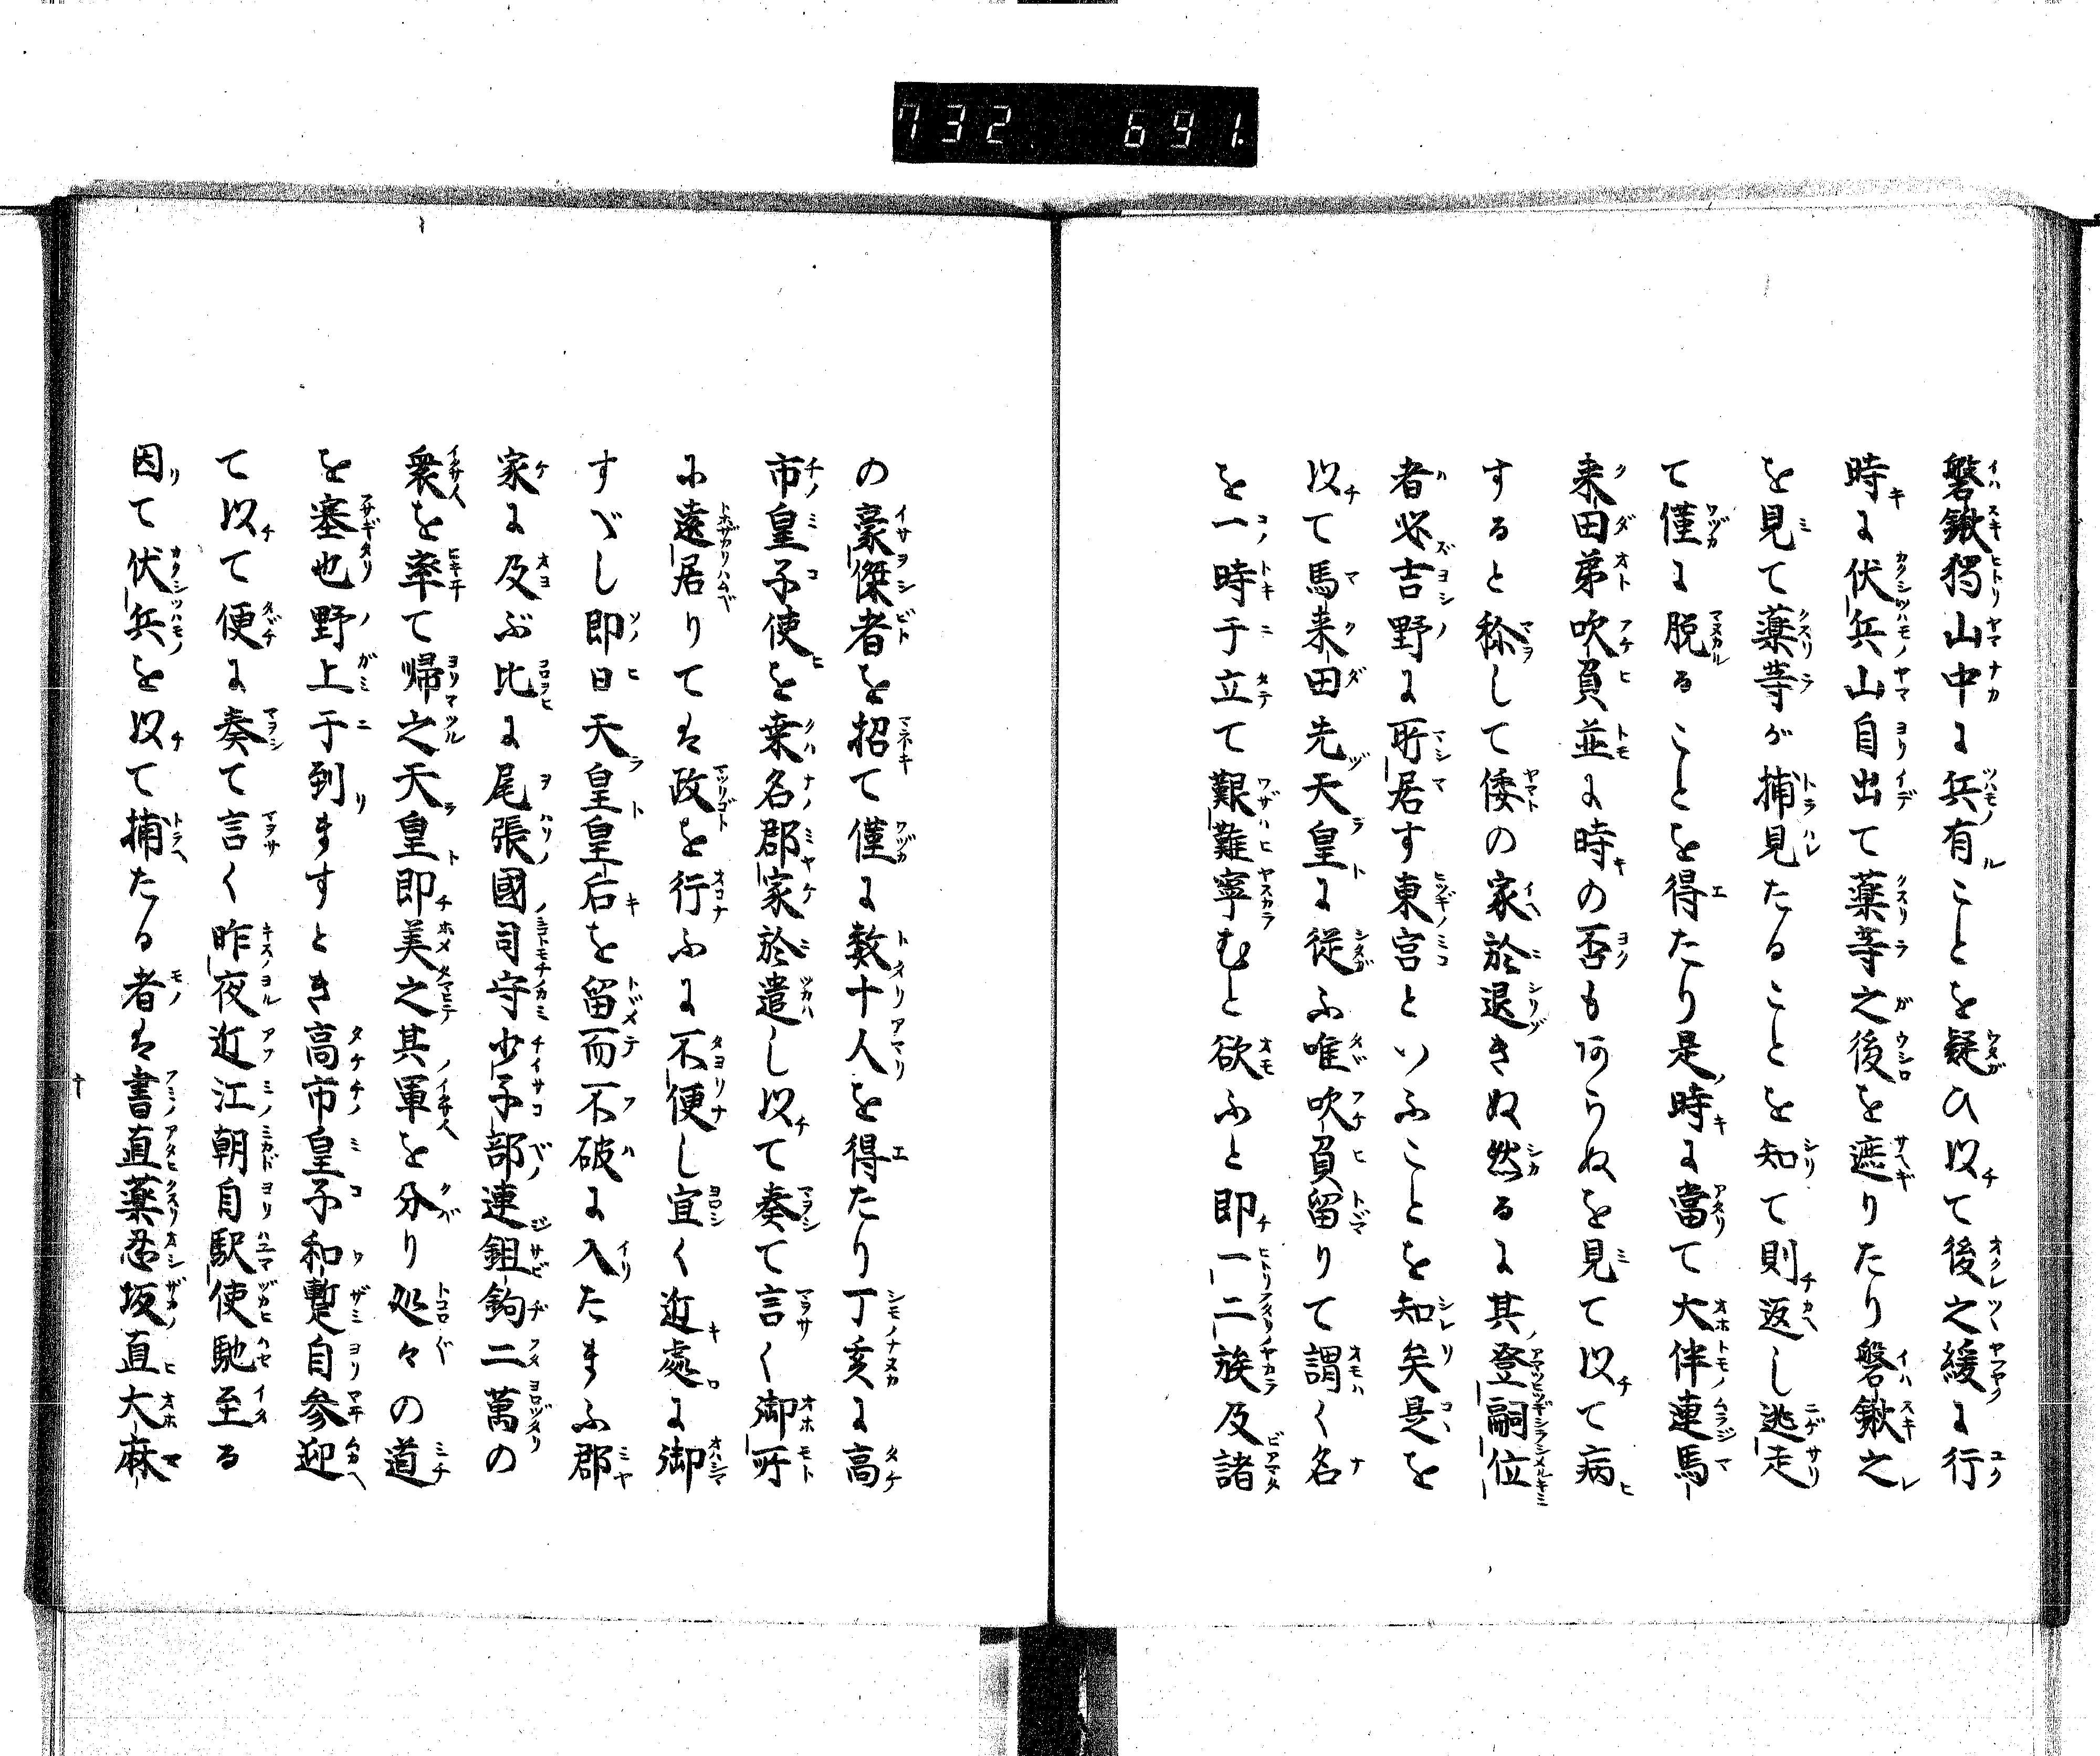 732 691.
磐鍬独山中に兵有ことを疑ひ以て後之緩に行
時に伏兵山自出て薬等之後を遮りたり磐鍬之
を見て薬等が捕見たることを知て則返し逃走
て僅に脱ることを得たり是時に當て大伴連馬
来田弟吹負並に時の否も何らぬを見て以て病
すると称して倭の家於退きぬ然るに其登嗣位
者必吉野に所居す東宮といふことを知矣是を
以て馬来田先天皇に従ふ唯吹負留りて謂く名
を一時于立て艱難寧むと欲ふと即一二族及諸
の豪傑者を招て僅に数十人を得たり丁亥に高
市皇子使を桒名郡家於遣し以て奏て言く御所
に遠居りては政を行ふに不便し宜く近處に御
すべし即日天皇皇后を留而不破に入たまふ郡
家に及ぶ比に尾張國司守少子部連鉏鉤二萬の
衆を率て帰之天皇即美之其軍を分り処々の道
を塞也野上于到ますとき高市皇子和蹔自参迎
て以て便に奏て言く昨夜近江朝自駅使馳至る
因て伏兵を以て捕たる者は書直薬忍坂直大麻